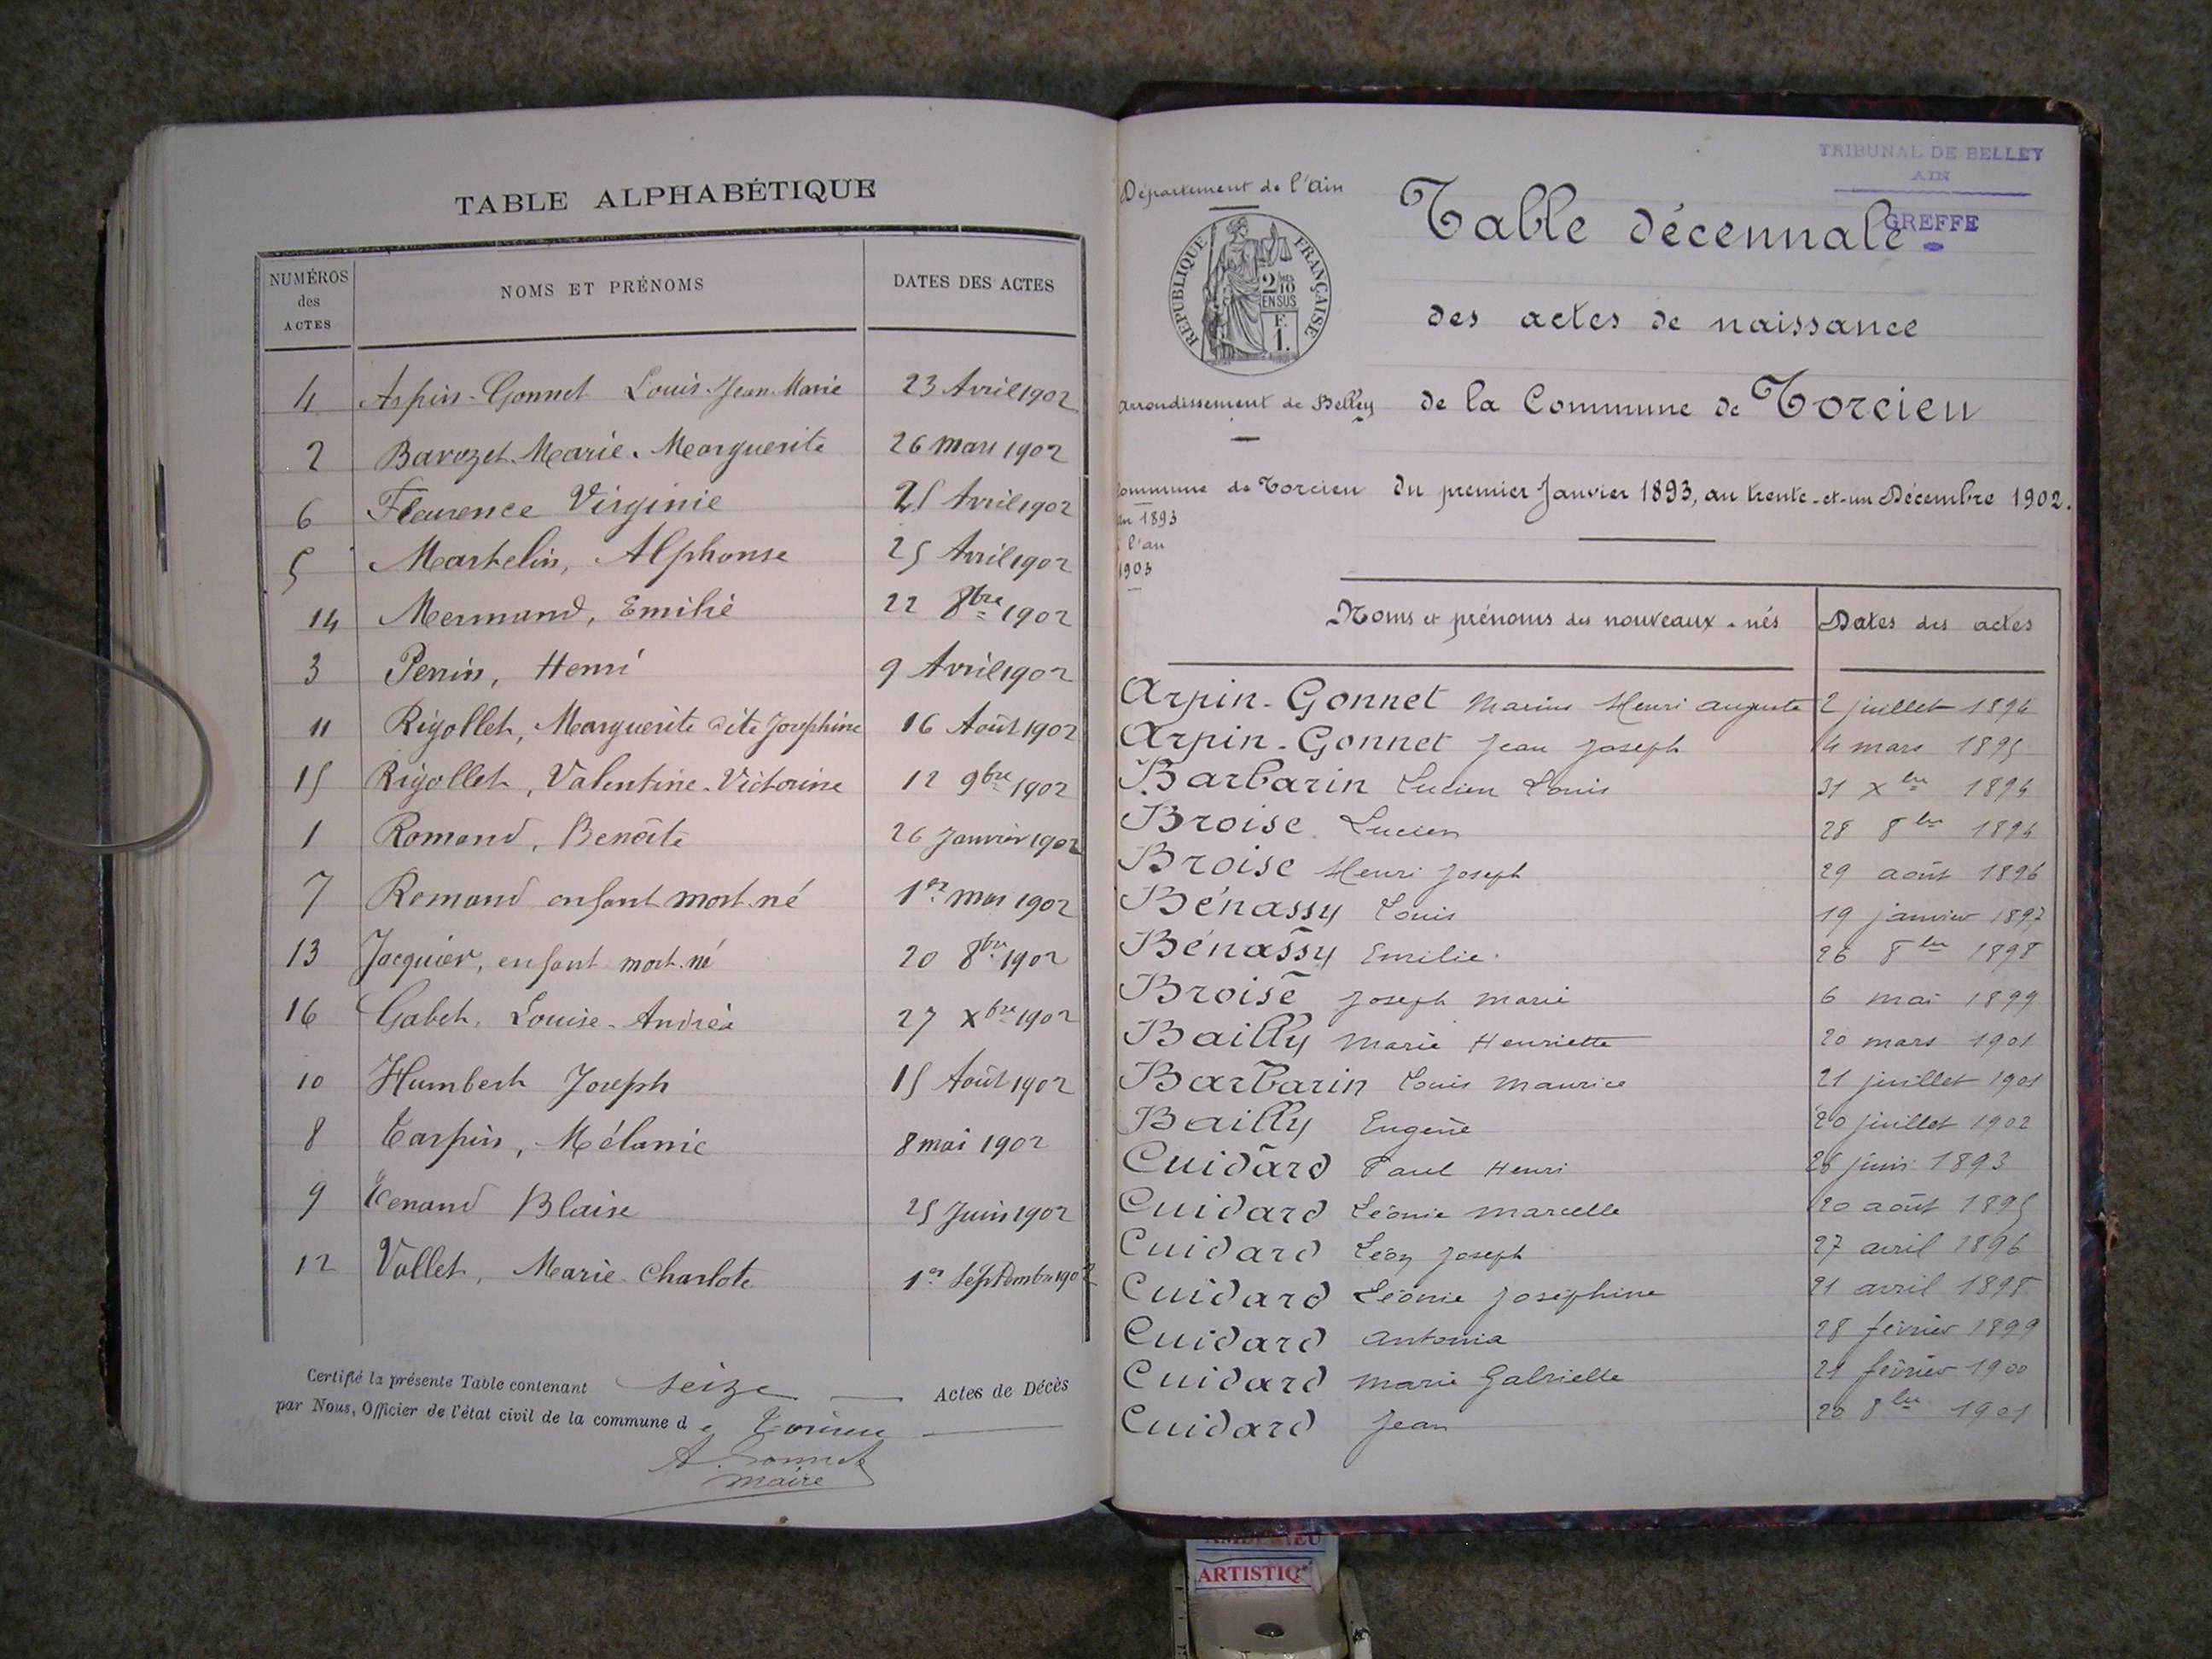 TABLE ALPHABÉTIQUE
NUMÉROS des ACTES NOMS ET PRÉNOMS DATES DES ACTES
4 Arpin-Gonnet Louis-Jean-Marie 23 Avril 1902
2 Barozet Marie-Marguerite 26 mars 1902
6 Fleurence Virginie 25 Avril 1902
5 Martelin, Alphonse 25 Avril 1902
14 Mermand, Emilie 22 8bre 1902
3 Perrin, Henri 9 Avril 1902
11 Rigollet, Marguerite dite Joséphine 16 Août 1902
15 Rigollet, Valentine-Victorine 12 9bre 1902
1 Romand, Benoîte 26 Janvier 1902
7 Romand enfant mort-né 1er mai 1902
13 Jacquier, enfant mort-né 20 8bre 1902
16 Gabet, Louise-Andréa 27 Xbre 1902
10 Humbert Joseph 15 Août 1902
8 Tarpin, Mélanie 8 mai 1902
9 Tenand Blaise 25 Juin 1902
12 Vallet, Marie-Charlote 1er Septembre 1902
Certifié la présente Table contenant seize Actes de Décès
par Nous, Officier de l'état civil de la commune de Torcieu
A. Gonnet
maire
TRIBUNAL DE BELLEY
AIN
GREFFE
Département de l'Ain
RÉPUBLIQUE FRANÇAISE
2/10 EN SUS
F.
1.
Table décennale
des actes de naissance
Arrondissement de Belley
de la Commune de Torcieu
Commune de Torcieu
Du premier Janvier 1893, au trente-et-un Décembre 1902.
an 1893
l'an
1903
Noms et prénoms des nouveaux-nés Dates des actes
Arpin-Gonnet Marius Henri Auguste 2 juillet 1894
Arpin-Gonnet Jean Joseph 14 mars 1895
Barbarin Lucien Louis 31 Xbre 1894
Broise Lucien 28 8bre 1894
Broise Henri Joseph 29 août 1896
Bénassy Louis 19 janvier 1897
Bénassy Emilie 26 8bre 1898
Broise Joseph Marie 6 mai 1899
Bailly Marie Henriette 20 mars 1901
Barbarin Louis Maurice 21 juillet 1901
Bailly Eugène 20 juillet 1902
Cuidard Paul Henri 26 juin 1893
Cuidard Léonie Marcelle 20 août 1895
Cuidard Léon Joseph 27 avril 1896
Cuidard Léonie Joséphine 21 avril 1898
Cuidard Antonia 28 février 1899
Cuidard Marie Gabrielle 21 février 1900
Cuidard Jean 20 8bre 1901
ARTISTIQ